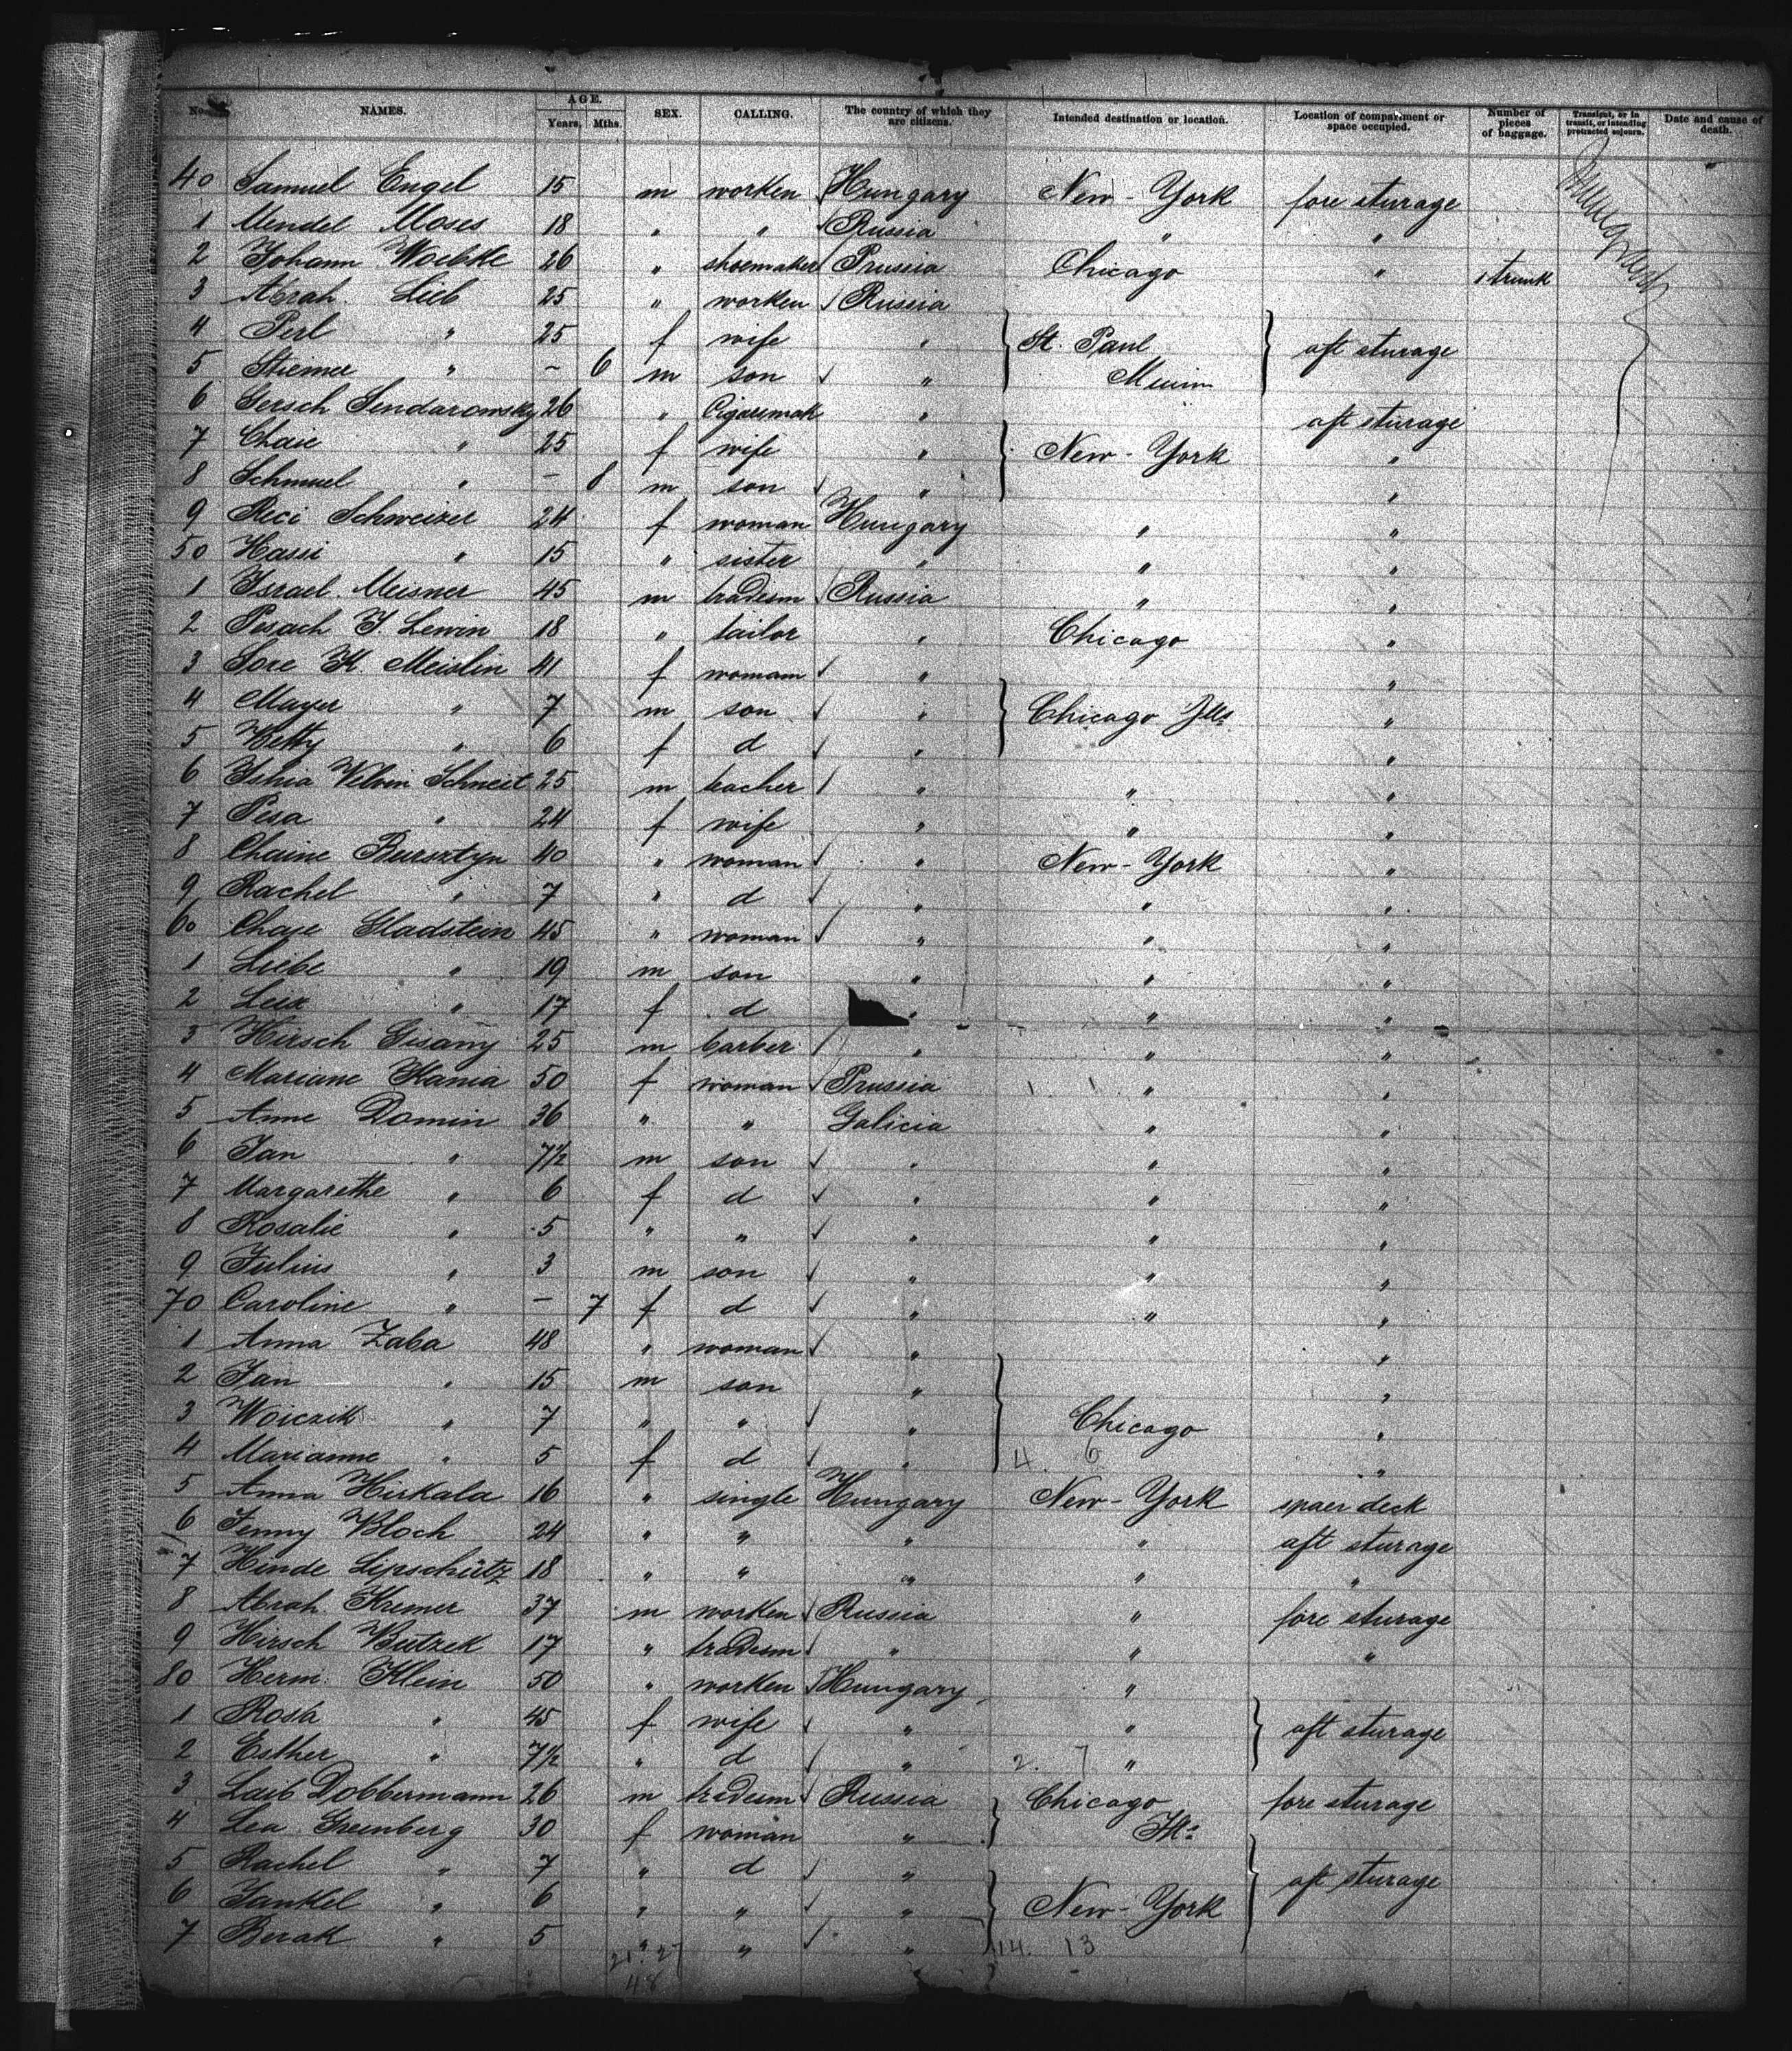 No. NAMES. AGE. Years. Mths. SEX. CALLING. The country of which they are citizens. Intended destination or location. Location of compartment or space occupied. Number of pieces of baggage. Transient, or in transit, or intending protracted sojourn. Date and cause of death.
40 Samuel Engel 15 m worken Hungary New-York fore sturage
1 Mendel Moses 18 " " Russia " "
2 Johann Woebke 26 " shoemaker Prussia Chicago " 1 trunk
3 Abrah. Lieb 25 " worken Russia
4 Perl " 25 f wife " St. Paul aft sturage
5 Stiemer " - 6 m son " Minim
6 Gersch Sendarowsky 26 " Cigarsmak " aft sturage
7 Chaie " 25 f wife " New-York "
8 Schmuel " - 8 m son " "
9 Reci Schweizer 24 f woman Hungary " "
50 Hassi " 15 " sister " " "
1 Israel Meisner 45 m tradesm Russia " "
2 Pesach J. Lewin 18 " tailor " Chicago "
3 Sore K. Meislin 41 f womam " "
4 Mayer " 7 m son " Chicago Ills "
5 Hetty " 6 f d " "
6 Velwin Schneit 25 m teacher " " "
7 Pesa " 24 f wife " " "
8 Chaine Bursztyn 40 " woman " New-York "
9 Rachel " 7 " d " " "
60 Chaje Gladstein 45 " woman " " "
1 Liebe " 19 m son " " "
2 Leia " 17 f d " " "
3 Hirsch Gisany 25 m barber " " "
4 Mariane Kania 50 f woman Prussia " "
5 Anne Domin 36 " " Galicia " "
6 Jan " 7½ m son " " "
7 Margarethe " 6 f d " " "
8 Rosalie " 5 " " " " "
9 Julius " 3 m son " " "
70 Caroline " - 7 f d " " "
1 Anna Zaba 48 " woman " "
2 Jan " 15 m son " "
3 Woiczik " 7 " " " Chicago "
4 Marianne " 5 f d " 4. 6 "
5 Anna Hirkala 16 " single Hungary New-York spaer deck
6 Jenny Bloch 24 " " " " aft sturage
7 Hinde Lipschütz 18 " " " " "
8 Abrah. Kremer 37 m worken Russia " fore sturage
9 Hirsch Butzek 17 " tradesm " " "
80 Herm. Klein 50 " worken Hungary "
1 Rosa " 45 f wife " " aft sturage
2 Esther " 7½ " d " 2. 7 "
3 Laib Dobbermann 26 m tradesm Russia Chicago fore sturage
4 Lea Greenberg 30 f woman " Ills
5 Rachel " 7 " d " aft sturage
6 Jankel " 6 " " " New-York
7 Berak " 5 " " " 14. 13
21 27
48